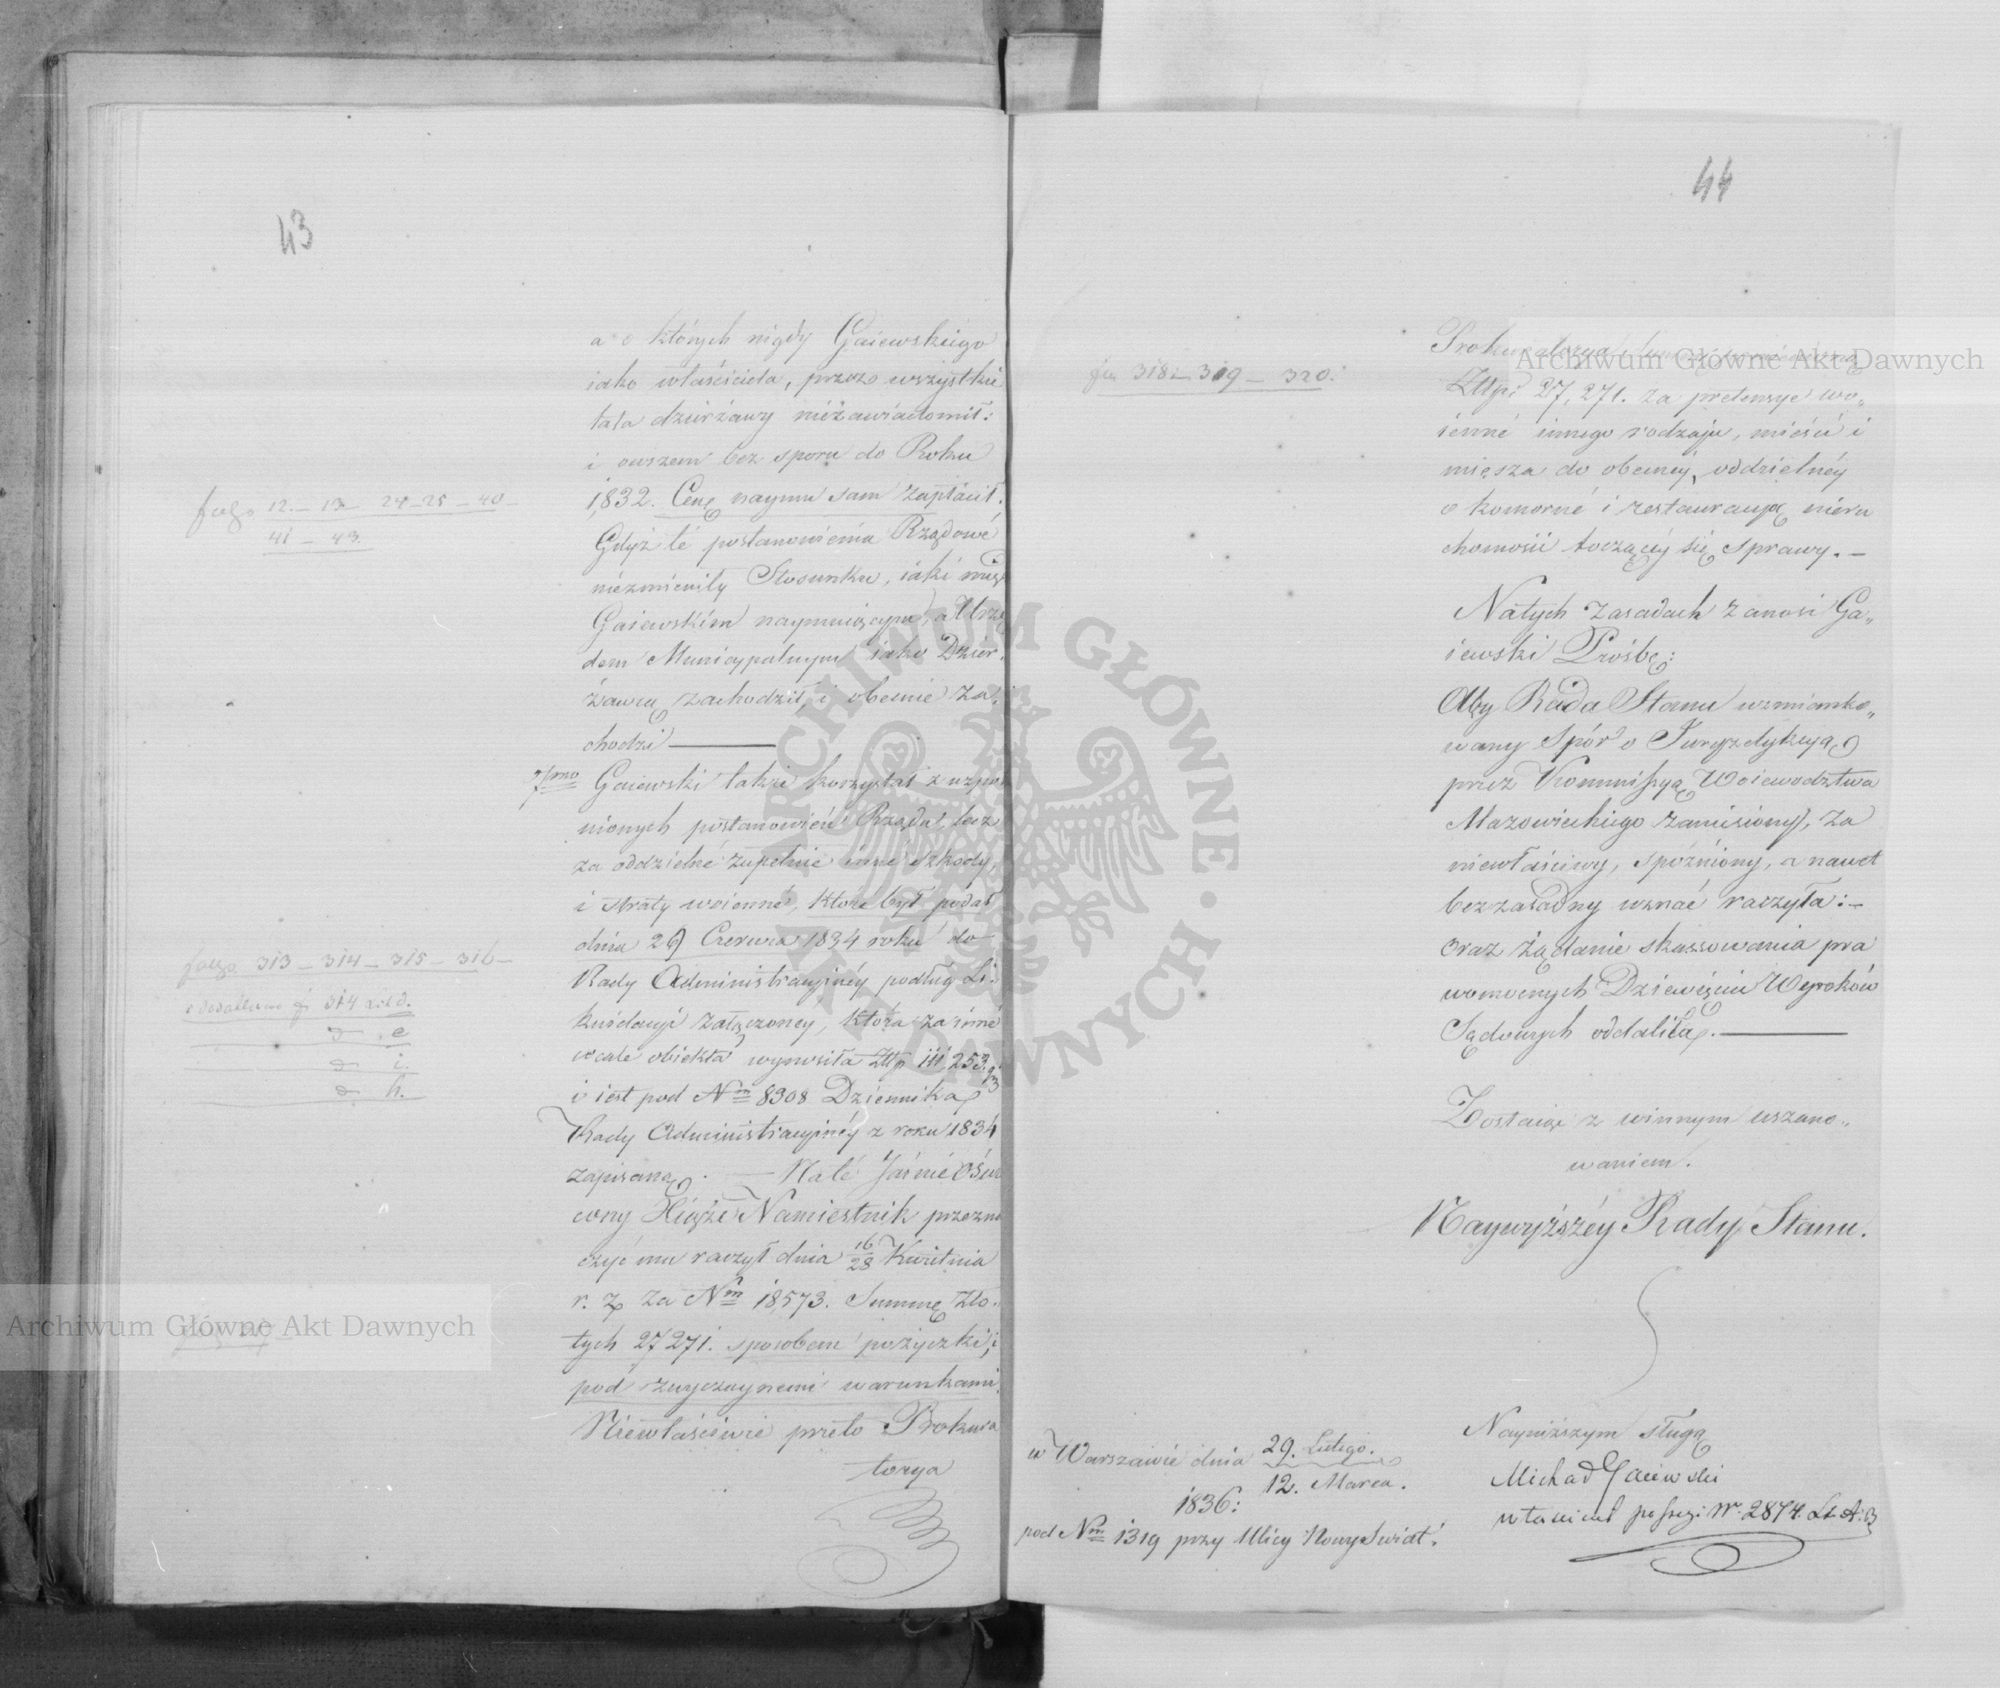 43
a o których nigdy Gaiewskiego
iako właściciela, przez wszystkie
lata dzierżawy niezawiadomił:
i owszem bez sporu do Roku
1,832. Cenę naymu sam zapłacił.
fago 12. — 13 — 24 — 25 — 40 —
41 — 43.
Gdyż te postanowienia Rządowe
niezmieniły Stosunku, iaki
Gaiewskim naymuiącym, a Urzę
dem Municypalnym iako Dzier
żawcą zachodził, i obecnie za,
chodzi
7mo Gaiewski także korzystał z
nionych postanowień Rządu, lecz
za oddzielne zupełnie inne szkody,
i straty woienne, które był podał
dnia 29 Czerwca 1834 roku do
fago 313 — 314 — 315 — 316 —
Rady Administracyinéy podług Li,
kwidacyi załączoney, która za inne
wcale obiekta wynosiła Złp 111,253.
i iest pod Nm 8308 Dziennika
Rady Administracyinéy z roku 1834
zapisaną. — Na te Jaśnie Oświe
cony Xiąże Namiestnik przezna
czyć mu raczył dnia 16/28 Kwietnia
r. z za Nm 18,573. Summę Zło,
tych 27 271. sposobem pożyczki, i
pod zwyczaynemi warunkami.
Niewłaściwie przeto Prokura
torya
44
318 — 319 — 320.
Prokuratorya
Złp: 27,271. za pretensye wo„
ienne innego rodzaju, mieści i
miesza do obecnéy, oddzielnéy
o komorne i restauracyą nieru
chomości toczącéy się sprawy. —
Natych zasadach zanosi Ga„
iewski Prośbę:
Aby Rada Stanu wzmianko„
wany Spór o Juryzdykcyą
przez Kommissyą Woiewodztwa
Mazowieckiego zaniesiony, za
niewłaściwy, spóźniony, a nawet
bezzasadny uznać raczyła: —
oraz żądanie skassowania pra
womocnych Dziewięciu Wyroków
Sądowych oddaliła.
Zostaię z winnym uszano„
waniem.
Naywyższéy Rady Stanu.
w Warszawie dnia 29. Lutego.
12. Marca.
1836:
pod Nm 1319 przy Ulicy Nowy Swiat.
Nayniższym sługą
Michał Gaiewski
własciciel possesyi Nr. 2874. Lit A: B
Archiwum Główne Akt Dawnych
Archiwum Główne Akt Dawnych
ARCHIWUM GŁÓWNE · AKT DAWNYCH ·